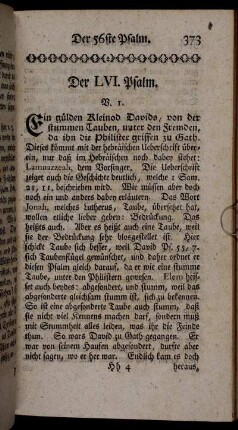 Der 56ste Psalm. 373
Der LVI. Psalm.
V. 1.
Ein gülden Kleinod Davids, von der
stummen Tauben, unter den Fremden,
da ihn die Philister griffen zu Gath.
Dieses kömmt mit der hebräischen Ueberschrift über-
ein, nur daß im Hebräischen noch dabey stehet:
Lamnazzeah, dem Vorsänger. Die Ueberschrift
zeiget auch die Geschichte deutlich, welche 1 Sam.
21, 11, beschrieben wird. Wir müssen aber doch
noch ein und anders dabey erläutern. Das Wort
Jonah, welches lutherus, Taube, übersetzet hat,
wollen etliche lieber geben: Bedrückung. Das
heißts auch. Aber es heißt auch eine Taube, weil
sie der Bedrückung sehr blosgestellet ist. Hier
schickt Taub sich besser, weil David Ps. 55, 7.
sich Taubenflügel gewünschet, und daher ordnet er
diesen Psalm gleich darauf, da er wie eine stumme
Taube, unter den Philistern gewesen. Elem heis-
set auch beydes: abgesondert, und stumm, weil das
abgesonderte gleichsam stumm ist, sich zu bekennen.
So ist eine abgesonderte Taube auch stumm, daß
sie nicht viel Rennens machen darf, sondern muß
mit Stummheit alles leiden, was ihr die Feinde
thun. So wars David zu Gath gegangen. Er
war von seinem Haufen abgesondert, durfte aber
nicht sagen, wo er her war. Endlich kam es doch
Hh 4 heraus,